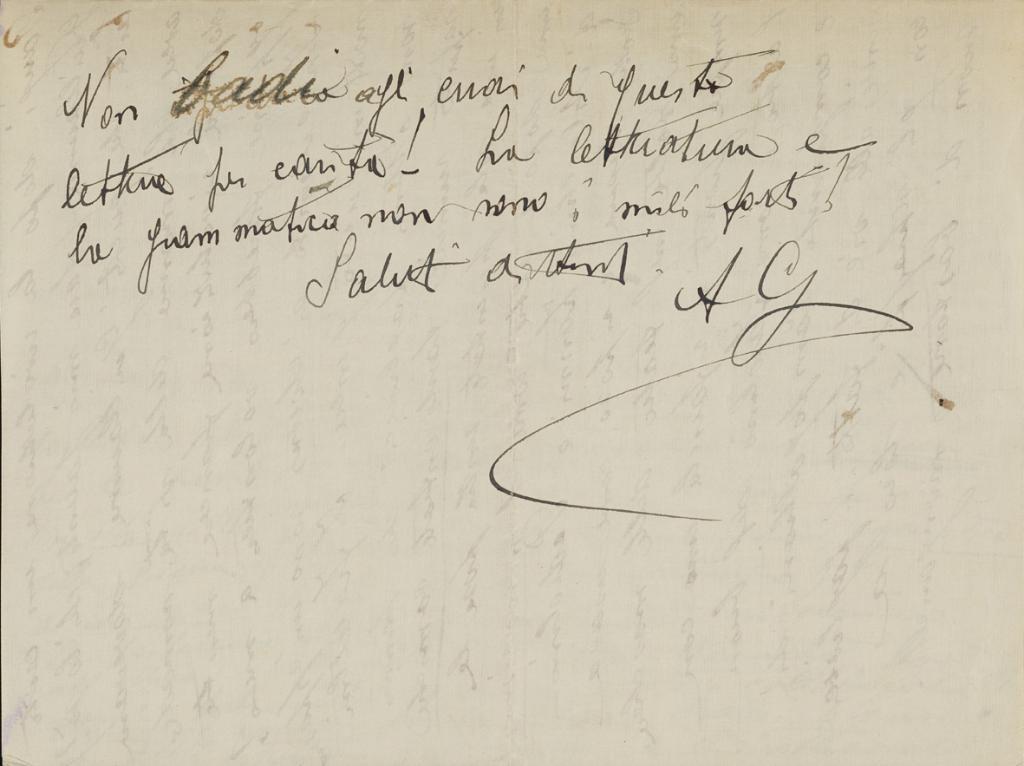 Non badi agli errori di questa
lettera per carità! La letteratura e
la grammatica non sono i miei forti!
Saluti distinti.
A G